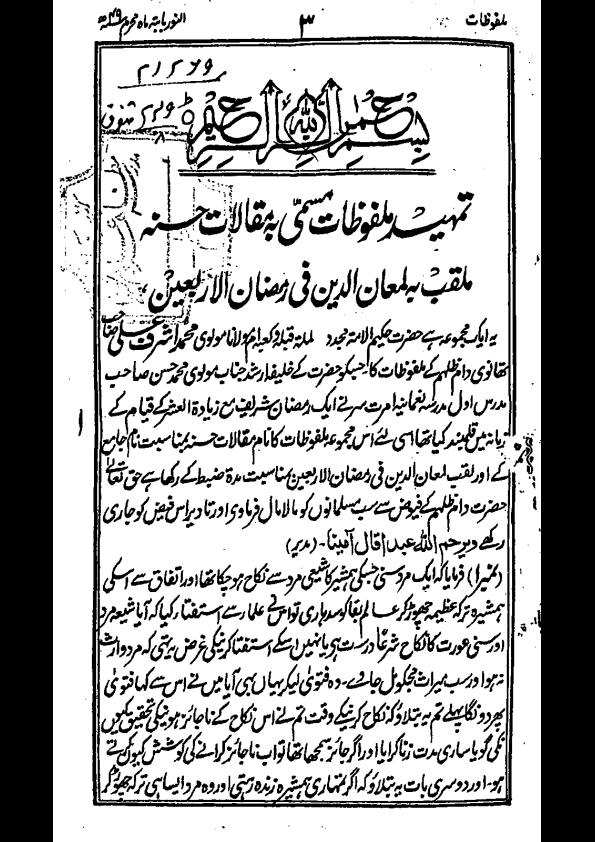 ملفوظات
۳
النور بابتہ ماہ محرم
۲۱۲۶۹
بسم اللہ الرحمن الرحیم
تمہید ملفوظات مسمّٰی بہ مقالات حسنہ
ملقب بہ لمعان الدین فی رمضان الاربعین،
یہ ایک مجموعہ ہے حضرت حکیم الامۃ مجدد الملۃ قبلہ و کعبہ ام مولانا مولوی محمد اشرف علی صاحب
تھانوی دام ظلہم کے ملفوظات کا۔ جسکو حضرت کے خلیفہ ارشد جناب مولوی محمد حسن صاحب
مدرس اول مدرسہ نعمانیہ امرتسر نے ایک رمضان شریف مع زیادۃ العشر کے قیام کے
زمانہ میں قلمبند کیا تھا اسی لئے اس مجموعہ ملفوظات کا نام مقالات حسنہ بمناسبت نام جامع
کے اور لقب لمعان الدین فی رمضان الاربعین بمناسبت مدۃ ضبط کے رکھا ہے حق تعالیٰ
حضرت دام ظلہم کے فیوض سے سب مسلمانوں کو مالا مال فرماوی اور تا دیر اس فیض کو جاری
رکھے ویرحم اللہ عبدا قال آمینا۔ (مدیر)
(نمبر۱) فرمایا کہ ایک مرد سنی جسکی ہمشیر کا شیعی مرد سے نکاح ہو چکا تھا اور اتفاق سے اسکی
ہمشیرہ ترکہ عظیمہ چھوڑ کر عالم بقا کو سدہاری تو اس نے علماء سے استفتاء کیا کہ آیا شیعہ مرد
اور سنی عورت کا نکاح شرعًا درست ہی یا نہیں اسکے استفتا کرنیکی غرض یہ تھی کہ مرد وارث
نہ ہوا ور سب میراث مجکو مل جاوے۔ وہ فتویٰ لیکر یہاں بہی آیا میں نے اس سے کہا فتویٰ
پھر دونگا پہلے تم یہ بتلاؤ کہ نکاح کرنیکے وقت تم نے اس نکاح کے ناجائز ہونیکی تحقیق کیوں
نکی گویا ساری مدت زنا کرایا اور اگر جائز سمجھا تھا تو اب ناجائز کرانے کی کوشش کیوں کرتے
ہو۔ اور دوسری بات یہ بتلاؤ کہ اگر تمہاری ہمشیرہ زندہ رہتی اور وہ مرد ایسا ہی ترکہ چھوڑ کر